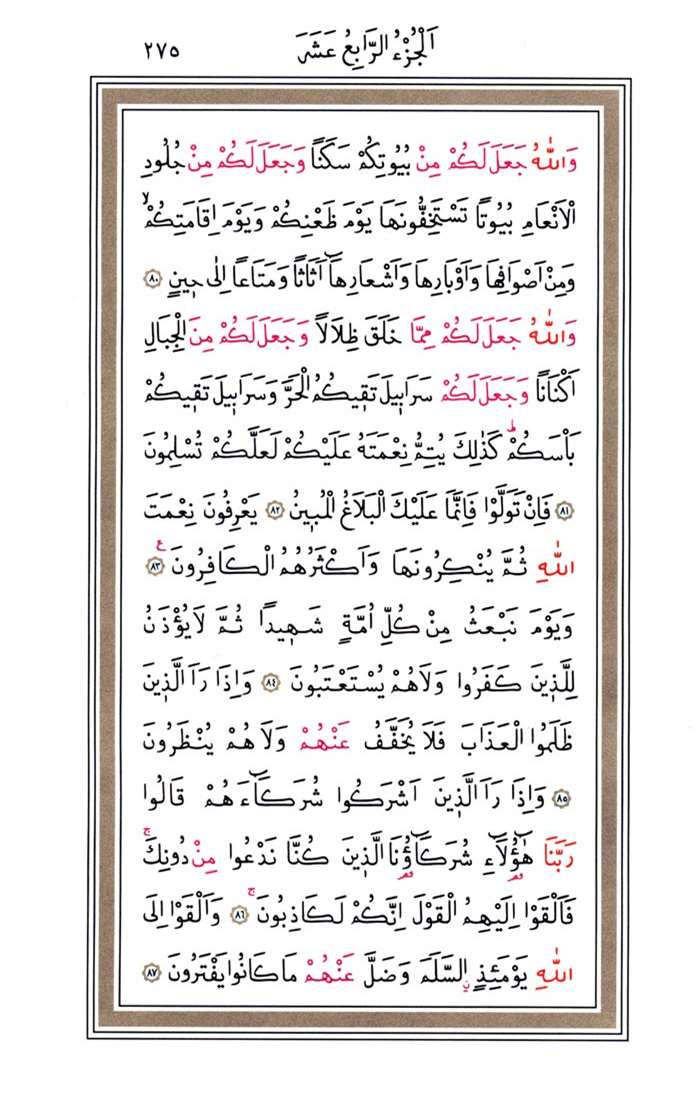 اَلْجُزْءُ الرَّابِعُ عَشَرَ ٢٧٥
وَاللّٰهُ جَعَلَ لَكُمْ مِنْ بُيُوتِكُمْ سَكَنًا وَجَعَلَ لَكُمْ مِنْ جُلُودِ
الْاَنْعَامِ بُيُوتًا تَسْتَخِفُّونَهَا يَوْمَ ظَعْنِكُمْ وَيَوْمَ اِقَامَتِكُمْۙ
وَمِنْ اَصْوَافِهَا وَاَوْبَارِهَا وَاَشْعَارِهَٓا اَثَاثًا وَمَتَاعًا اِلٰى حٖينٍ ٨٠
وَاللّٰهُ جَعَلَ لَكُمْ مِمَّا خَلَقَ ظِلَالًا وَجَعَلَ لَكُمْ مِنَ الْجِبَالِ
اَكْنَانًا وَجَعَلَ لَكُمْ سَرَابٖيلَ تَقٖيكُمُ الْحَرَّ وَسَرَابٖيلَ تَقٖيكُمْ
بَاْسَكُمْۜ كَذٰلِكَ يُتِمُّ نِعْمَتَهُ عَلَيْكُمْ لَعَلَّكُمْ تُسْلِمُونَ
٨١ فَاِنْ تَوَلَّوْا فَاِنَّمَا عَلَيْكَ الْبَلَاغُ الْمُبٖينُ ٨٢ يَعْرِفُونَ نِعْمَتَ
اللّٰهِ ثُمَّ يُنْكِرُونَهَا وَاَكْثَرُهُمُ الْكَافِرُونَ ࣖ ٨٣
وَيَوْمَ نَبْعَثُ مِنْ كُلِّ اُمَّةٍ شَهٖيدًا ثُمَّ لَا يُؤْذَنُ
لِلَّذٖينَ كَفَرُوا وَلَا هُمْ يُسْتَعْتَبُونَ ٨٤ وَاِذَا رَاَ الَّذٖينَ
ظَلَمُوا الْعَذَابَ فَلَا يُخَفَّفُ عَنْهُمْ وَلَا هُمْ يُنْظَرُونَ
٨٥ وَاِذَا رَاَ الَّذٖينَ اَشْرَكُوا شُرَكَٓاءَهُمْ قَالُوا
رَبَّنَا هٰٓؤُ۬لَٓاءِ شُرَكَٓاؤُ۬نَا الَّذٖينَ كُنَّا نَدْعُوا مِنْ دُونِكَۚ
فَاَلْقَوْا اِلَيْهِمُ الْقَوْلَ اِنَّكُمْ لَكَاذِبُونَۚ ٨٦ وَاَلْقَوْا اِلَى
اللّٰهِ يَوْمَئِذٍ اِلسَّلَمَ وَضَلَّ عَنْهُمْ مَا كَانُوا يَفْتَرُونَ ٨٧